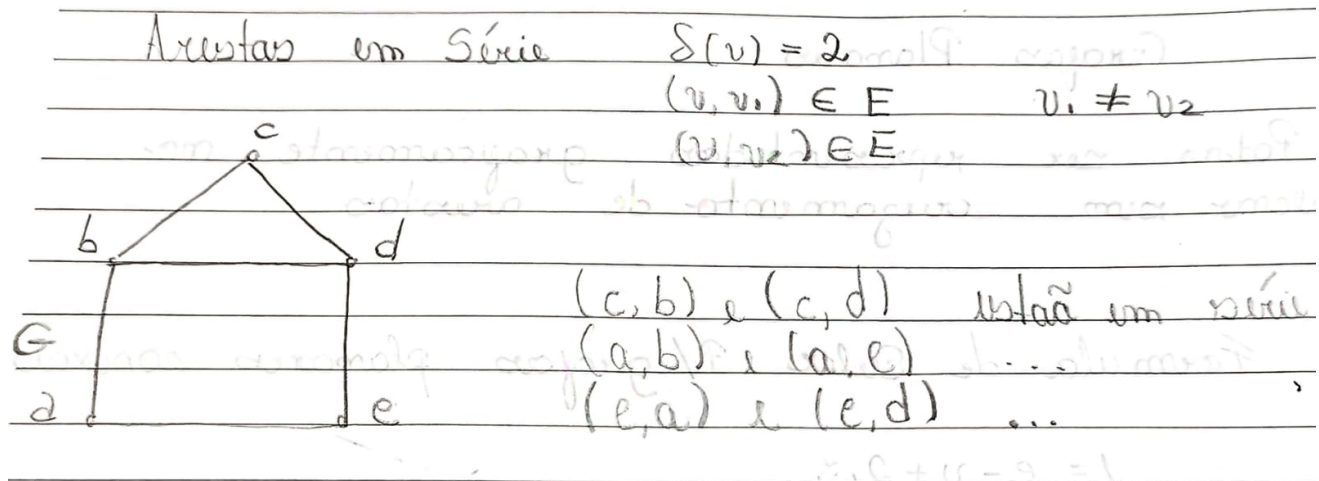 Arestas em Série δ(v) = 2
(v, v₁) ∈ E v₁ ≠ v₂
(v, v₂) ∈ E
c
b d
(c, b) e (c, d) estaõ em série
G
(a, b) e (a, e) ...
a e
(e, a) e (e, d) ...